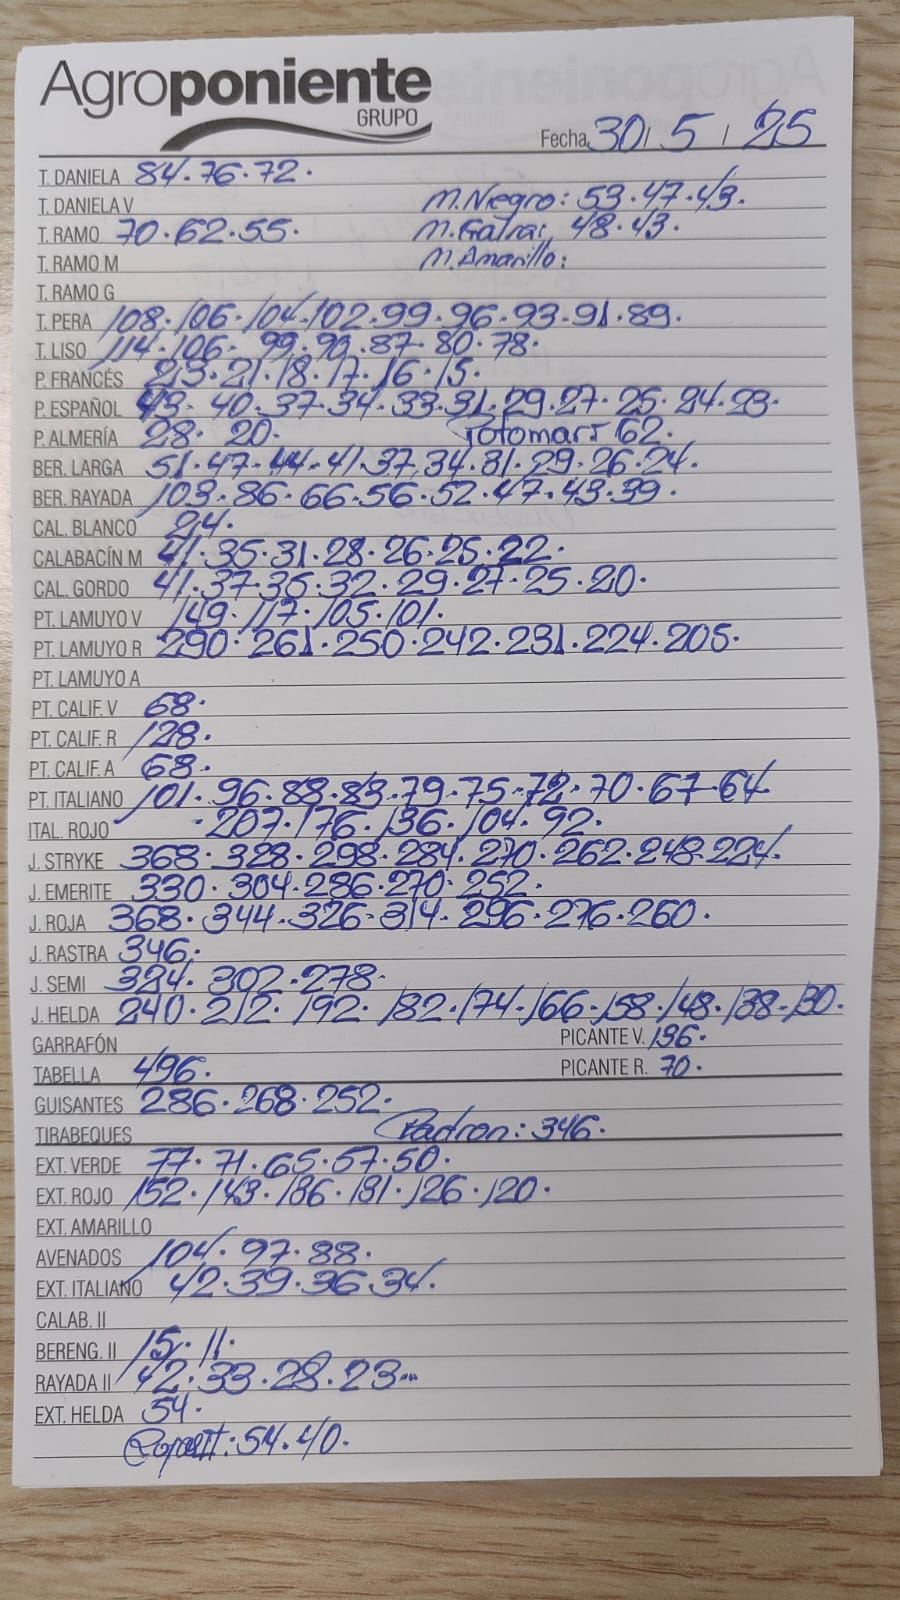 Agroponiente
GRUPO
Fecha 30 / 5 / 25
T. DANIELA 84.76.72.
T. DANIELA V M.Negro: 53.47.43.
T. RAMO 70.62.55. M.Galia: 48.43.
T. RAMO M M.Amarillo:
T. RAMO G
T. PERA 108.106.104.102.99.96.93.91.89.
T. LISO 114.106. 99.90.87.80.78.
P. FRANCÉS 23.21.18.17.16.15.
P. ESPAÑOL 43. 40.37.34.33.31.29.27.25.24.23.
P. ALMERÍA 28. 20. 62.
BER. LARGA 51.47.44.41.37.34.31.29.26.24.
BER. RAYADA 103.86.66.56.52.47.43.39.
CAL. BLANCO 24.
CALABACÍN M 41.35.31.28.26.25.22.
CAL. GORDO 41.37.35.32.29.27.25.20.
PT. LAMUYO V 149.117.105.101.
PT. LAMUYO R 290.261.250.242.231.224.205.
PT. LAMUYO A
PT. CALIF. V 68.
PT. CALIF. R 128.
PT. CALIF. A 68.
PT. ITALIANO 101.96.88.83.79.75.72.70.67.64.
ITAL. ROJO 207.176.136.104.92.
J. STRYKE 368.328.298.284.270.262.248.224.
J. EMERITE 330.304.286.270.252.
J. ROJA 368.344.326.314.296.276.260.
J. RASTRA 346.
J. SEMI 324.302.278.
J. HELDA 240.212.192.182.174.166.158.148.138.130.
GARRAFÓN PICANTE V. 136.
TABELLA 496. PICANTE R. 70.
GUISANTES 286.268.252.
TIRABEQUES Padron: 346.
EXT. VERDE 77.71.65.57.50.
EXT. ROJO 152.143.136.131.126.120.
EXT. AMARILLO
AVENADOS 104.97.88.
EXT. ITALIANO 42.39.36.34.
CALAB. II
BERENG. II 15.11.
RAYADA II 42.33.28.23..
EXT. HELDA 54.
54.40.